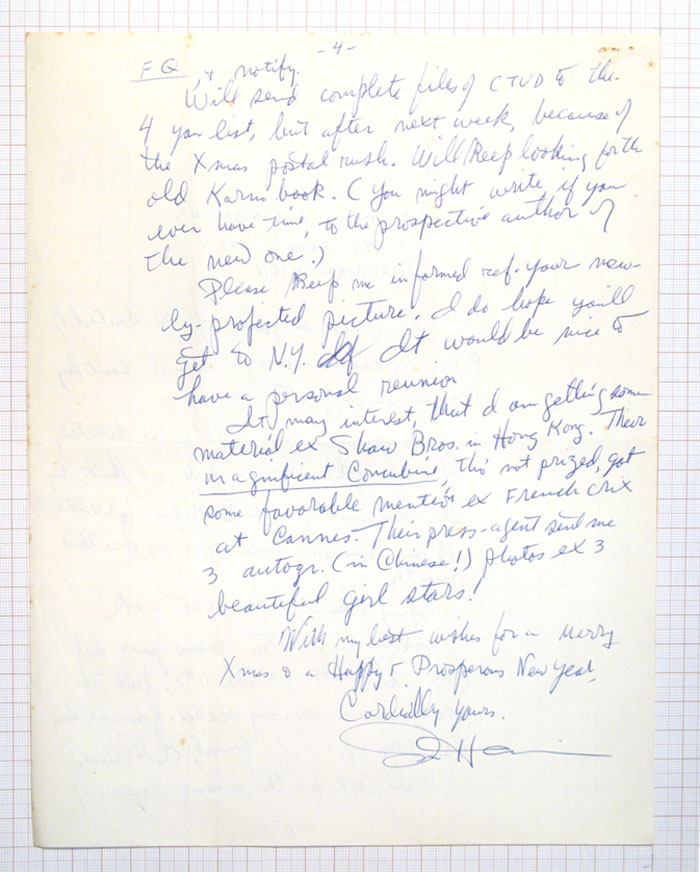 -4-
FQ, + notify.
Will send complete files of CTVD to the
4 you list, but after next week, because of
the Xmas postal rush. Will keep looking for th
old Karno book. (You might write, if you
ever have time, to the prospective author of
the new one.)
Please keep me informed ref. your new-
ly-projected picture. I do hope you'll
get to N.Y. It would be nice to
have a personal reunion
It may interest, that I am getting some
material ex Shaw Bros. in Hong Kong. Their
Magnificent Concubine, tho' not prized, got
some favorable mention ex French crix
at Cannes. Their press-agent sent me
3 autogr. (in Chinese!) photos ex 3
beautiful girl stars!
With my best wishes for a Merry
Xmas & a Happy + Prosperous New Year,
Cordially yours.